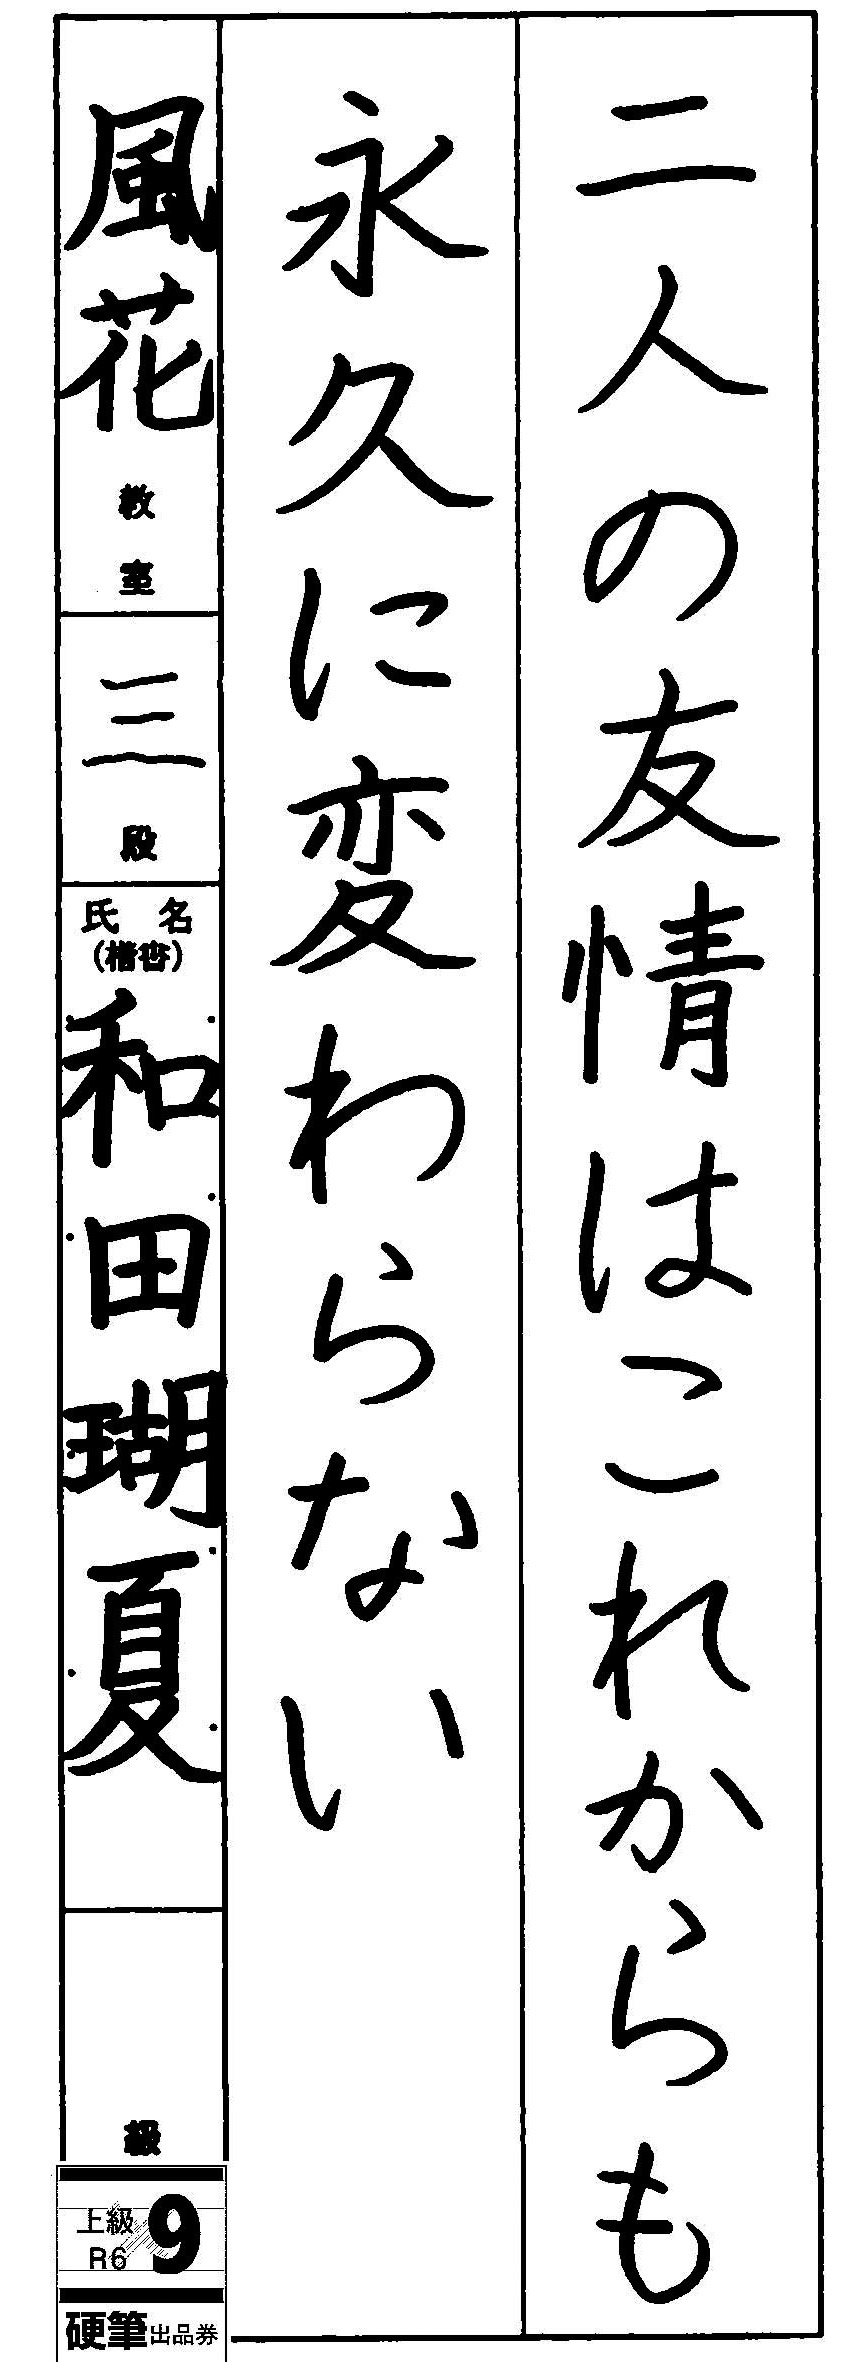 二人の友情はこれからも
永久に変わらない
風花教室
三段
氏名
(楷書)
和田瑚夏
級
上級
R6
9
硬筆出品券